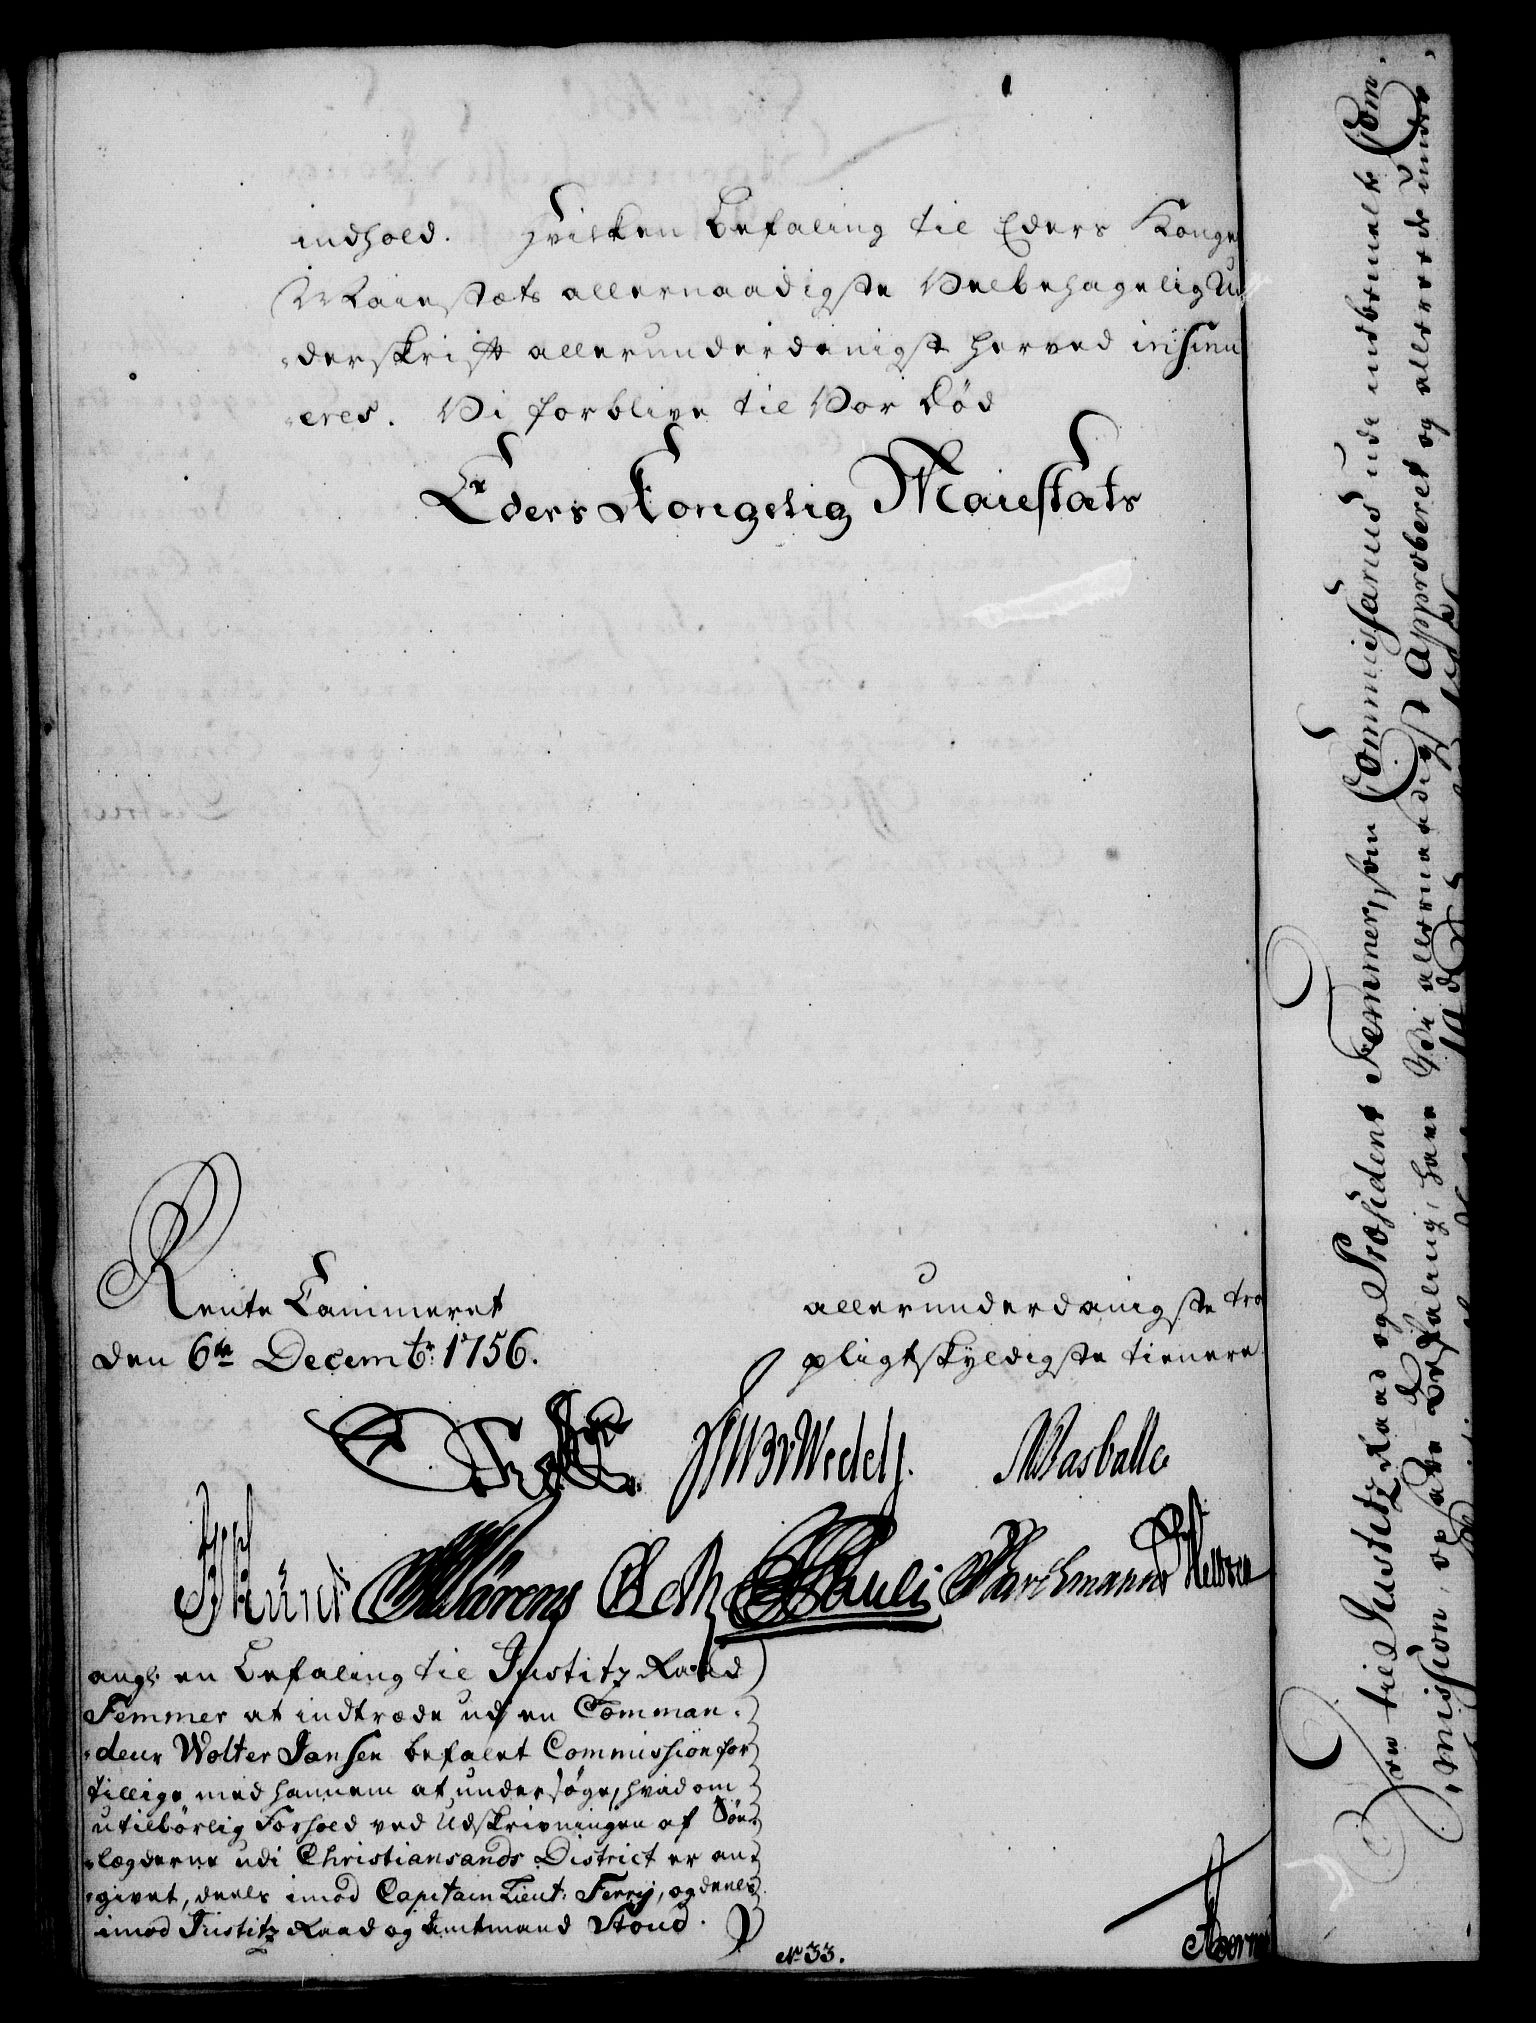 indhold. Hvilken Befaling til Eders Konge
Maiestæts allernaadigste Velbehagelig U
-derskrift allerunderdanigst herved insinu
-eres. Vi forblive til Vor Død
Eders Kongelig Maiestæts
Rente Cammeret
den 6te Decembr: 1756.
allerunderdanigste tro
pligtskyldigste tienere
Wedel
Masballe
Kund Wörens Eeth Pauli Barchmann
ang: en Befaling til Justitz Raad
Femmer at indtræde udj en Comman-
-deur Wolter Jansen befalet Commission for
tillige med hannem at undersøge, hvad om
utilbørlig Forhold ved Udskrivningen af Søe-
-lægderne udi Christiansands District er an-
-givet, deels imod Capitain Lieut: Ferrij, og deels
imod Justitz Raad og Amtmand Stoud.
No 33.
Den til Justitz Raad og Præsident Femmer, som Commissarius udi indbemelte Com-
-mission, opsadte Befaling, have Vi allernaadigst Approberet og allerede under-